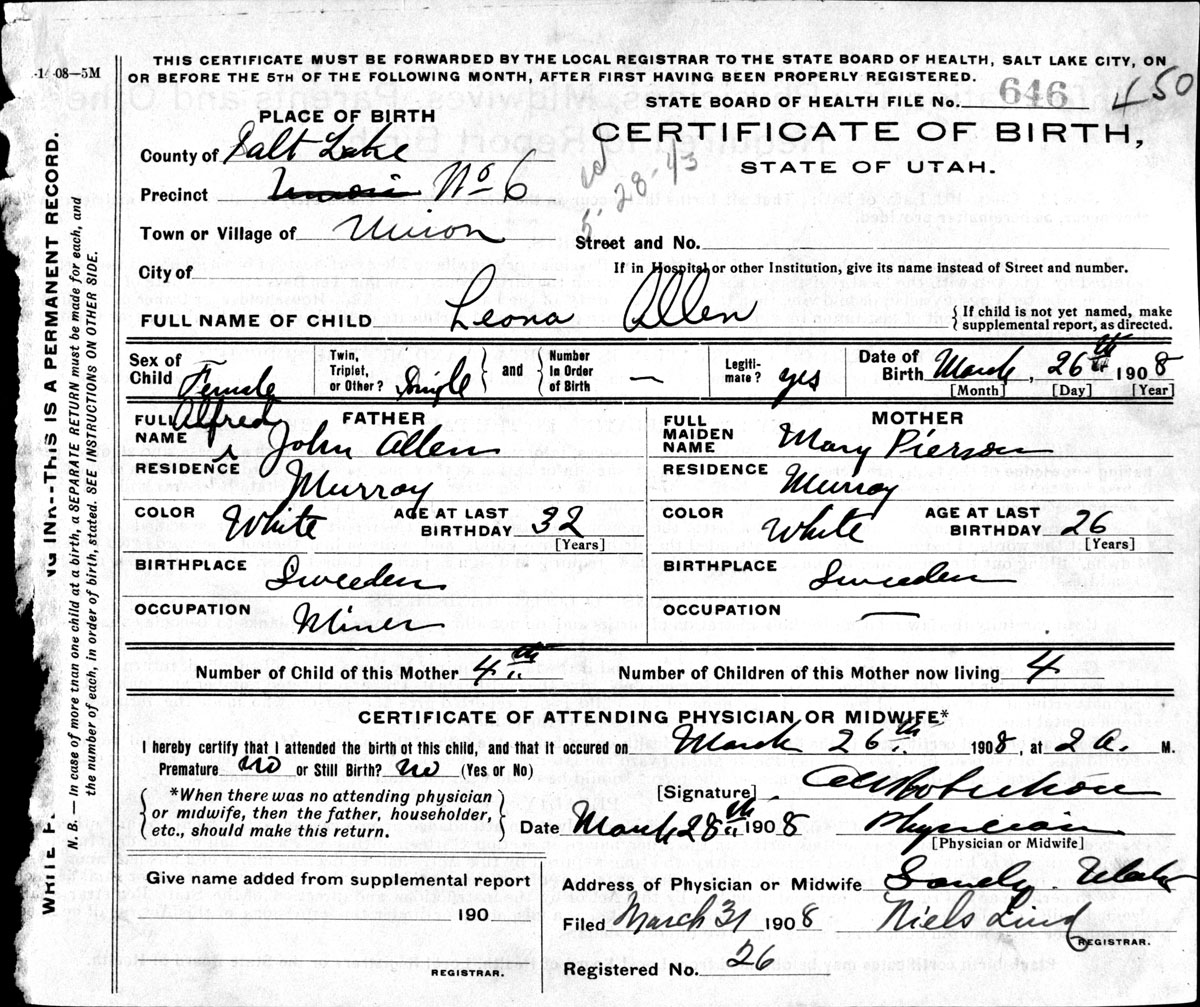 THIS CERTIFICATE MUST BE FORWARDED BY THE LOCAL REGISTRAR TO THE STATE BOARD OF HEALTH, SALT LAKE CITY, ON
OR BEFORE THE 5TH OF THE FOLLOWING MONTH, AFTER FIRST HAVING BEEN PROPERLY REGISTERED.
08—5M
STATE BOARD OF HEALTH FILE No. 646 450
PLACE OF BIRTH
CERTIFICATE OF BIRTH,
STATE OF UTAH.
County of Salt Lake
Precinct Union No 6
5-28-43
Town or Village of Union
Street and No.
City of
If in Hospital or other Institution, give its name instead of Street and number.
FULL NAME OF CHILD Leona Allen
{ If child is not yet named, make
supplemental report, as directed.
Sex of Child Female
Twin, Triplet, or Other? Single } and { Number In Order of Birth —
Legiti-mate? yes
Date of Birth March, 26th 1908
[Month] [Day] [Year]
FATHER
FULL NAME Alfred John Allen
RESIDENCE Murray
COLOR White AGE AT LAST BIRTHDAY 32
[Years]
BIRTHPLACE Sweeden
OCCUPATION Miner
MOTHER
FULL MAIDEN NAME Mary Pierson
RESIDENCE Murray
COLOR White AGE AT LAST BIRTHDAY 26
[Years]
BIRTHPLACE Sweeden
OCCUPATION —
Number of Child of this Mother 4th Number of Children of this Mother now living 4
CERTIFICATE OF ATTENDING PHYSICIAN OR MIDWIFE*
I hereby certify that I attended the birth of this child, and that it occured on March 26th 1908, at 2 A. M.
Premature no or Still Birth? no (Yes or No)
*When there was no attending physician
or midwife, then the father, householder,
etc., should make this return.
[Signature] Robertson
Date March 28th 1908 Physician
[Physician or Midwife]
Give name added from supplemental report
190
REGISTRAR.
Address of Physician or Midwife Sandy Utah
Filed March 31 1908 Niels Lind
REGISTRAR.
Registered No. 26
NG INK--THIS IS A PERMANENT RECORD.
N. B.— In case of more than one child at a birth, a SEPARATE RETURN must be made for each, and
the number of each, in order of birth, stated. SEE INSTRUCTIONS ON OTHER SIDE.